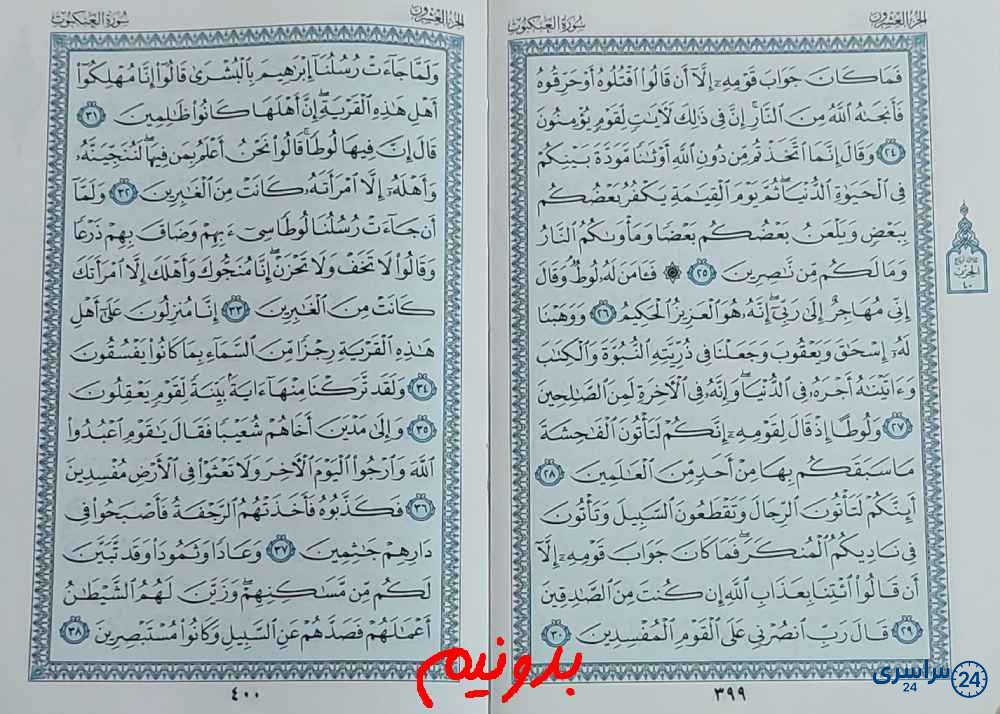 الجزء العشرون
سورة العنكبوت
فَمَا كَانَ جَوَابَ قَوْمِهِۦٓ إِلَّآ أَن قَالُوا۟ ٱقْتُلُوهُ أَوْ حَرِّقُوهُ
فَأَنجَىٰهُ ٱللَّهُ مِنَ ٱلنَّارِ ۚ إِنَّ فِى ذَٰلِكَ لَءَايَٰتٍ لِّقَوْمٍ يُؤْمِنُونَ
٢٤ وَقَالَ إِنَّمَا ٱتَّخَذْتُم مِّن دُونِ ٱللَّهِ أَوْثَٰنًا مَّوَدَّةَ بَيْنِكُمْ
فِى ٱلْحَيَوٰةِ ٱلدُّنْيَا ۖ ثُمَّ يَوْمَ ٱلْقِيَٰمَةِ يَكْفُرُ بَعْضُكُم
بِبَعْضٍ وَيَلْعَنُ بَعْضُكُم بَعْضًا وَمَأْوَىٰكُمُ ٱلنَّارُ
وَمَا لَكُم مِّن نَّٰصِرِينَ ٢٥ ۞ فَـَٔامَنَ لَهُۥ لُوطٌ ۘ وَقَالَ
إِنِّى مُهَاجِرٌ إِلَىٰ رَبِّىٓ ۖ إِنَّهُۥ هُوَ ٱلْعَزِيزُ ٱلْحَكِيمُ ٢٦ وَوَهَبْنَا
لَهُۥٓ إِسْحَٰقَ وَيَعْقُوبَ وَجَعَلْنَا فِى ذُرِّيَّتِهِ ٱلنُّبُوَّةَ وَٱلْكِتَٰبَ
وَءَاتَيْنَٰهُ أَجْرَهُۥ فِى ٱلدُّنْيَا ۖ وَإِنَّهُۥ فِى ٱلْءَاخِرَةِ لَمِنَ ٱلصَّٰلِحِينَ
٢٧ وَلُوطًا إِذْ قَالَ لِقَوْمِهِۦٓ إِنَّكُمْ لَتَأْتُونَ ٱلْفَٰحِشَةَ
مَا سَبَقَكُم بِهَا مِنْ أَحَدٍ مِّنَ ٱلْعَٰلَمِينَ ٢٨
أَئِنَّكُمْ لَتَأْتُونَ ٱلرِّجَالَ وَتَقْطَعُونَ ٱلسَّبِيلَ وَتَأْتُونَ
فِى نَادِيكُمُ ٱلْمُنكَرَ ۖ فَمَا كَانَ جَوَابَ قَوْمِهِۦٓ إِلَّآ
أَن قَالُوا۟ ٱئْتِنَا بِعَذَابِ ٱللَّهِ إِن كُنتَ مِنَ ٱلصَّٰدِقِينَ
٢٩ قَالَ رَبِّ ٱنصُرْنِى عَلَى ٱلْقَوْمِ ٱلْمُفْسِدِينَ ٣٠
٣٩٩
الحزب
٤٠
الجزء العشرون
سورة العنكبوت
وَلَمَّا جَآءَتْ رُسُلُنَآ إِبْرَٰهِيمَ بِٱلْبُشْرَىٰ قَالُوٓا۟ إِنَّا مُهْلِكُوٓا۟
أَهْلِ هَٰذِهِ ٱلْقَرْيَةِ ۖ إِنَّ أَهْلَهَا كَانُوا۟ ظَٰلِمِينَ ٣١
قَالَ إِنَّ فِيهَا لُوطًا ۚ قَالُوا۟ نَحْنُ أَعْلَمُ بِمَن فِيهَا ۖ لَنُنَجِّيَنَّهُۥ
وَأَهْلَهُۥٓ إِلَّا ٱمْرَأَتَهُۥ كَانَتْ مِنَ ٱلْغَٰبِرِينَ ٣٢ وَلَمَّآ
أَن جَآءَتْ رُسُلُنَا لُوطًا سِىٓءَ بِهِمْ وَضَاقَ بِهِمْ ذَرْعًا
وَقَالُوا۟ لَا تَخَفْ وَلَا تَحْزَنْ ۖ إِنَّا مُنَجُّوكَ وَأَهْلَكَ إِلَّا ٱمْرَأَتَكَ
كَانَتْ مِنَ ٱلْغَٰبِرِينَ ٣٣ إِنَّا مُنزِلُونَ عَلَىٰٓ أَهْلِ
هَٰذِهِ ٱلْقَرْيَةِ رِجْزًا مِّنَ ٱلسَّمَآءِ بِمَا كَانُوا۟ يَفْسُقُونَ
٣٤ وَلَقَد تَّرَكْنَا مِنْهَآ ءَايَةًۢ بَيِّنَةً لِّقَوْمٍ يَعْقِلُونَ
٣٥ وَإِلَىٰ مَدْيَنَ أَخَاهُمْ شُعَيْبًا فَقَالَ يَٰقَوْمِ ٱعْبُدُوا۟
ٱللَّهَ وَٱرْجُوا۟ ٱلْيَوْمَ ٱلْءَاخِرَ وَلَا تَعْثَوْا۟ فِى ٱلْأَرْضِ مُفْسِدِينَ
٣٦ فَكَذَّبُوهُ فَأَخَذَتْهُمُ ٱلرَّجْفَةُ فَأَصْبَحُوا۟ فِى
دَارِهِمْ جَٰثِمِينَ ٣٧ وَعَادًا وَثَمُودَا۟ وَقَد تَّبَيَّنَ
لَكُم مِّن مَّسَٰكِنِهِمْ ۖ وَزَيَّنَ لَهُمُ ٱلشَّيْطَٰنُ
أَعْمَٰلَهُمْ فَصَدَّهُمْ عَنِ ٱلسَّبِيلِ وَكَانُوا۟ مُسْتَبْصِرِينَ ٣٨
٤٠٠
بدونیم
سراسری
24
24